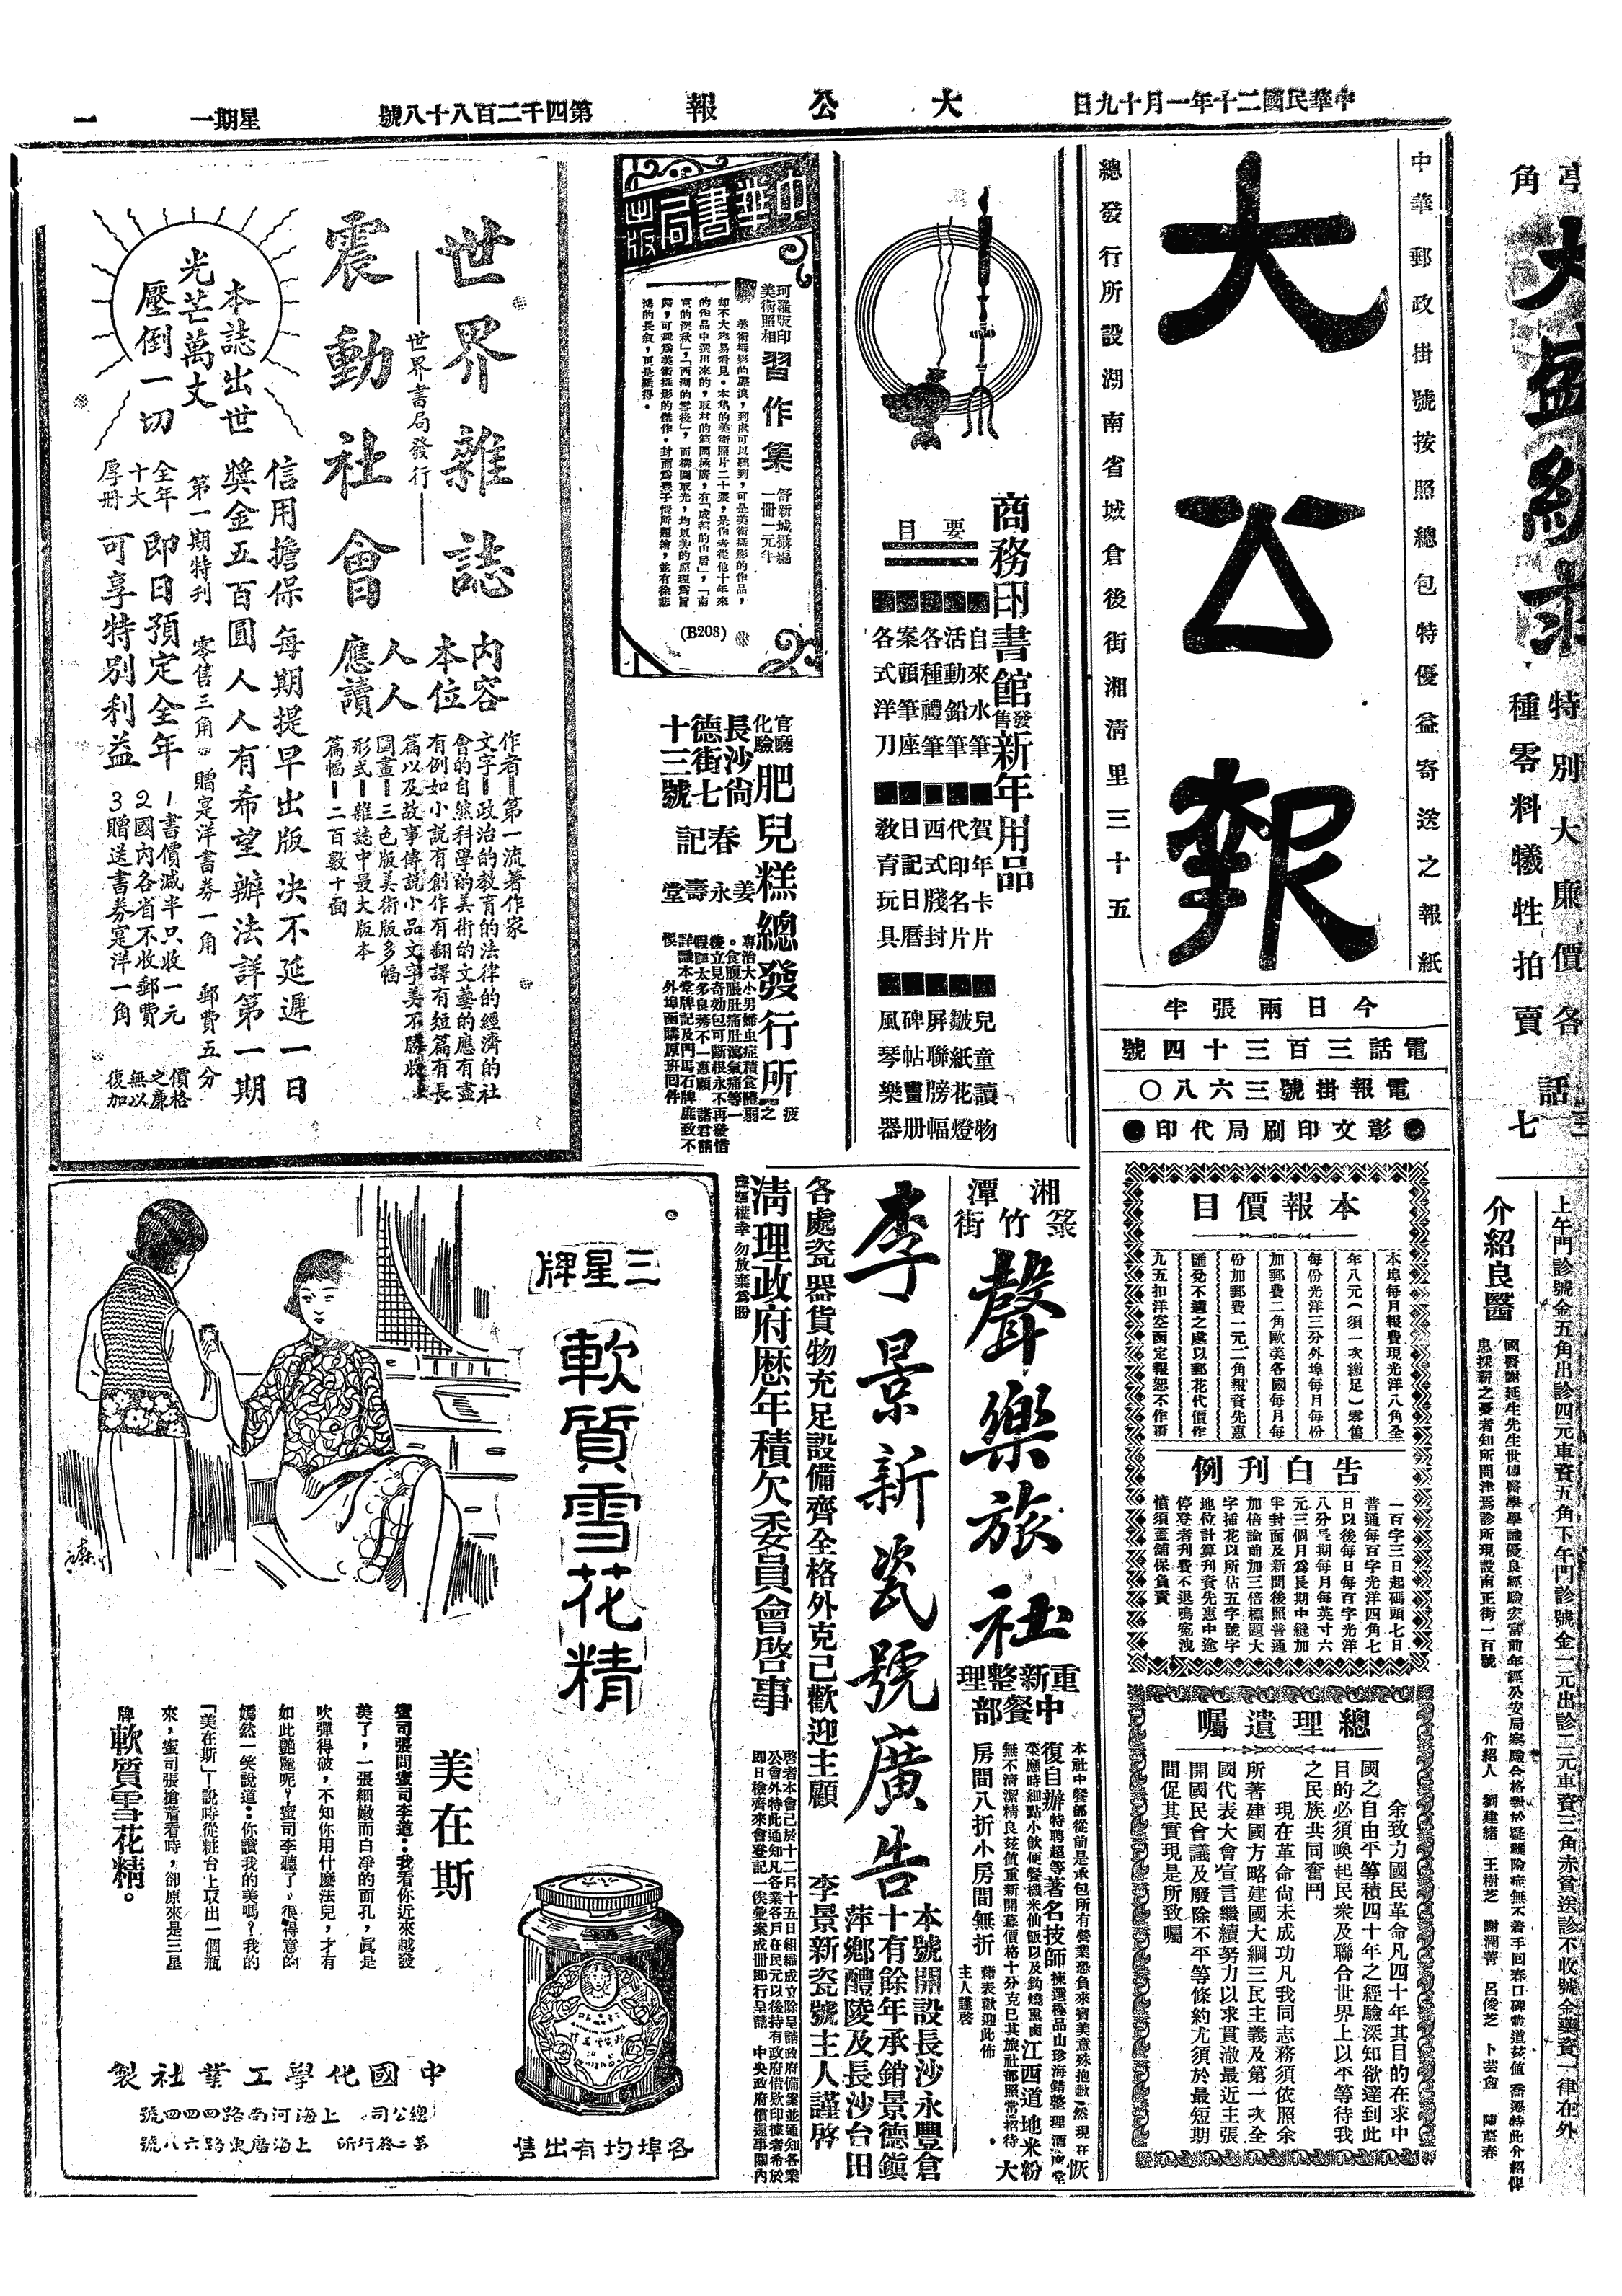 中華民國二十年一月十九日
大公報
第四千二百八十八號
星期一
一
中華郵政掛號按照總包特優益寄送之報紙
大公報
總發行所設湖南省城倉後街湘清里三十五
今日兩張半
電話三百三十四號
電報掛號三六八〇
●彰文印刷局代印●
本報價目
本埠每月報費現光洋八角全
年八元(須一次繳足)零售
每份光洋三分外埠每月每份
加郵費二角歐美各國每月每
份加郵費一元二角報資先惠
匯兌不通之處以郵花代價作
九五扣洋空函定報恕不作覆
告白刊例
一百字三日起碼頭七日
普通每百字光洋四角七
日以後每日每百字光洋
八分長期每月每英寸六
元三個月爲長期中縫加
半封面及新聞後照普通
加倍論前加三倍標題大
字插花以所佔五字號字
地位計算刊資先惠中途
停登者刊費不退鳴冤洩
憤須蓋舖保負責
總理遺囑
余致力國民革命凡四十年其目的在求中
國之自由平等積四十年之經驗深知欲達到此
目的必須喚起民衆及聯合世界上以平等待我
之民族共同奮鬥
現在革命尚未成功凡我同志務須依照余
所著建國方略建國大綱三民主義及第一次全
國代表大會宣言繼續努力以求貫澈最近主張
開國民會議及廢除不平等條約尤須於最短期
間促其實現是所致囑
特別大廉價各
種零料犧牲拍賣
上午門診號金五角出診四元車資五角下午門診號金一元出診二元車資三角赤貧送診不收號金藥資一律在外
介紹良醫
國醫謝延生先生世傳醫學學識優良經驗宏富前年經公安局案驗合格對於疑難險症無不着手回春口碑載道茲值喬澤特此介紹俾
患採薪之憂者知所問津焉診所現設南正街一百號
介紹人
劉建緒
王樹芝
謝潤菁
呂俊芝
商務印書館發售新年用品
要目
自來水筆
活動鉛筆
各種禮筆
案頭筆座
各式洋刀
賀年卡片
代印名片
西式牋封
日記日曆
教育玩具
兒童讀物
皺紙花燈
屏聯牓幅
碑帖畫册
風琴樂器
中華書局出版
珂羅版印
美術照相
習作集
舒新城攝編
一冊一元半
美術攝影的塵浪,到處可以聽到,可是美術攝影的作品,
却不大容易看見。本集的美術照片二十張,是作者從他十年來
的作品中選出來的,取材的範圍極廣,有「成都的山居」,「南
京的深秋」,「西湖的雪後」,而構圖取光,均以美的原理爲旨
歸,可說爲美術攝影的傑作。封面爲豐子愷所題繪,並有徐悲
鴻的長敘,更是難得。
(B208)
官廳化驗
肥兒糕總發行所
長沙尙
德街七
十三號
春記
姜永壽堂
專治大小男婦虫症積食體弱疲乏
食腹脹肚痛肚瀉氣痛等一
後立見奇効包可斷根永不再發惜
假冒太多良莠不一惠顧諸君請
詳識本堂牌記及門馬石牌庶致不
悞
外埠函購原班囘件
世界雜誌
世界書局發行
震動社會
本誌出世
光芒萬丈
壓倒一切
內容本位
人人應讀
作者—第一流著作家
文字—政治的教育的法律的經濟的社
會的自然科學的美術的文藝的應有盡
有例如小説有創作有翻譯有短篇有長
篇以及故事傳説小品文字美不勝收
圖畫—三色版美術版多幅
形式—雜誌中最大版本
篇幅—二百數十面
信用擔保
每期提早出版決不延遲一日
獎金五百圓人人有希望辦法詳第一期
第一期特刊
零售三角
贈寔洋書券一角
郵費五分
全年十大厚册
即日預定全年
可享特別利益
1書價減半只收一元
2國內各省不收郵費
3贈送書券寔洋一角
價格之廉無以復加
湘潭
篆竹街
聲樂旅社
重新整理
中餐部
本社中餐部從前是承包所有營業恐負來賓美意殊抱歉然現在恢
復自辦特聘超等著名技師揀選極品山珍海錯整理酒席堂
菜應時細點小飲便餐機米仙飯以及鈎燒熏鹵江西道地米粉
無不清潔精良茲值重新開幕價格十分克已其旅社部照常招待。大
房間八折小房間無折
藉表歡迎此佈
主人謹啓
李景新瓷號廣告
本號開設長沙永豐倉
十有餘年承銷景德鎮
萍鄉醴陵及長沙台田
各處瓷器貨物充足設備齊全格外克己歡迎主顧
李景新瓷號主人謹啓
清理政府歷年積欠委員會啓事
啓者本會已於十二月十五日組織成立除呈請政府備案並通知各業
公會外特此通知凡各業各戶在民元以後持有政府借欵印據者希於
即日檢齊來會登記一俟彙案成冊即行呈請
中央政府償還事關內
勿放棄爲盼
三星牌
軟質雪花精
美在斯
蜜司張問蜜司李道:我看你近來越發
美了,一張細嫩而白凈的面孔,眞是
吹彈得破,不知你用什麽法兒,才有
如此艷麗呢?蜜司李聽了,很得意的
嫣然一笑說道:你讚我的美嗎?我的
「美在斯」!說時從粧台上取出一個瓶
來,蜜司張搶着看時,卻原來是三星
牌軟質雪花精。
中國化學工業社製
總公司
上海河南路四四四號
第二發行所
上海廣東路六八號
各埠均有出售